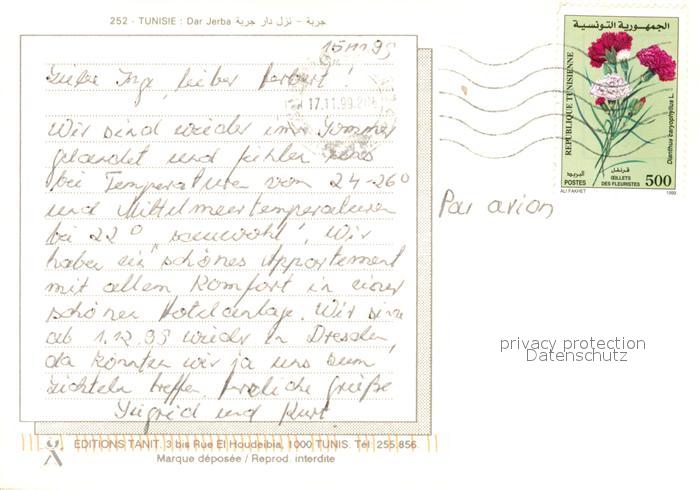 252 - TUNISIE : Dar Jerba جربة - نزل دار جربة
15.11.99
Liebe Inge, lieber Herbert!
17.11.99
Wir sind wieder im Sommer
gelandet und fühlen uns
bei Temperaturen von 24-26°
und Mittelmeertemperaturen
bei 22° "sauwohl". Wir
haben ein schönes Appartement
mit allem Komfort in einer
schönen Hotelanlage. Wir sind
ab 1.12.99 wieder in Dresden,
da könnten wir ja uns zum
Lichteln treffen. Herzliche Grüße
Ingrid und Kurt
EDITIONS TANIT. 3 bis Rue El Houdeibia, 1000 TUNIS. Tél: 255.856.
Marque déposée / Reprod. interdite
الجمهورية التونسية
REPUBLIQUE TUNISIENNE
Dianthus caryophyllus L.
البريد
POSTES
قرنفل
ŒILLETS
DES FLEURISTES
500
ALI FAKHET
1999
Par avion
privacy protection
Datenschutz